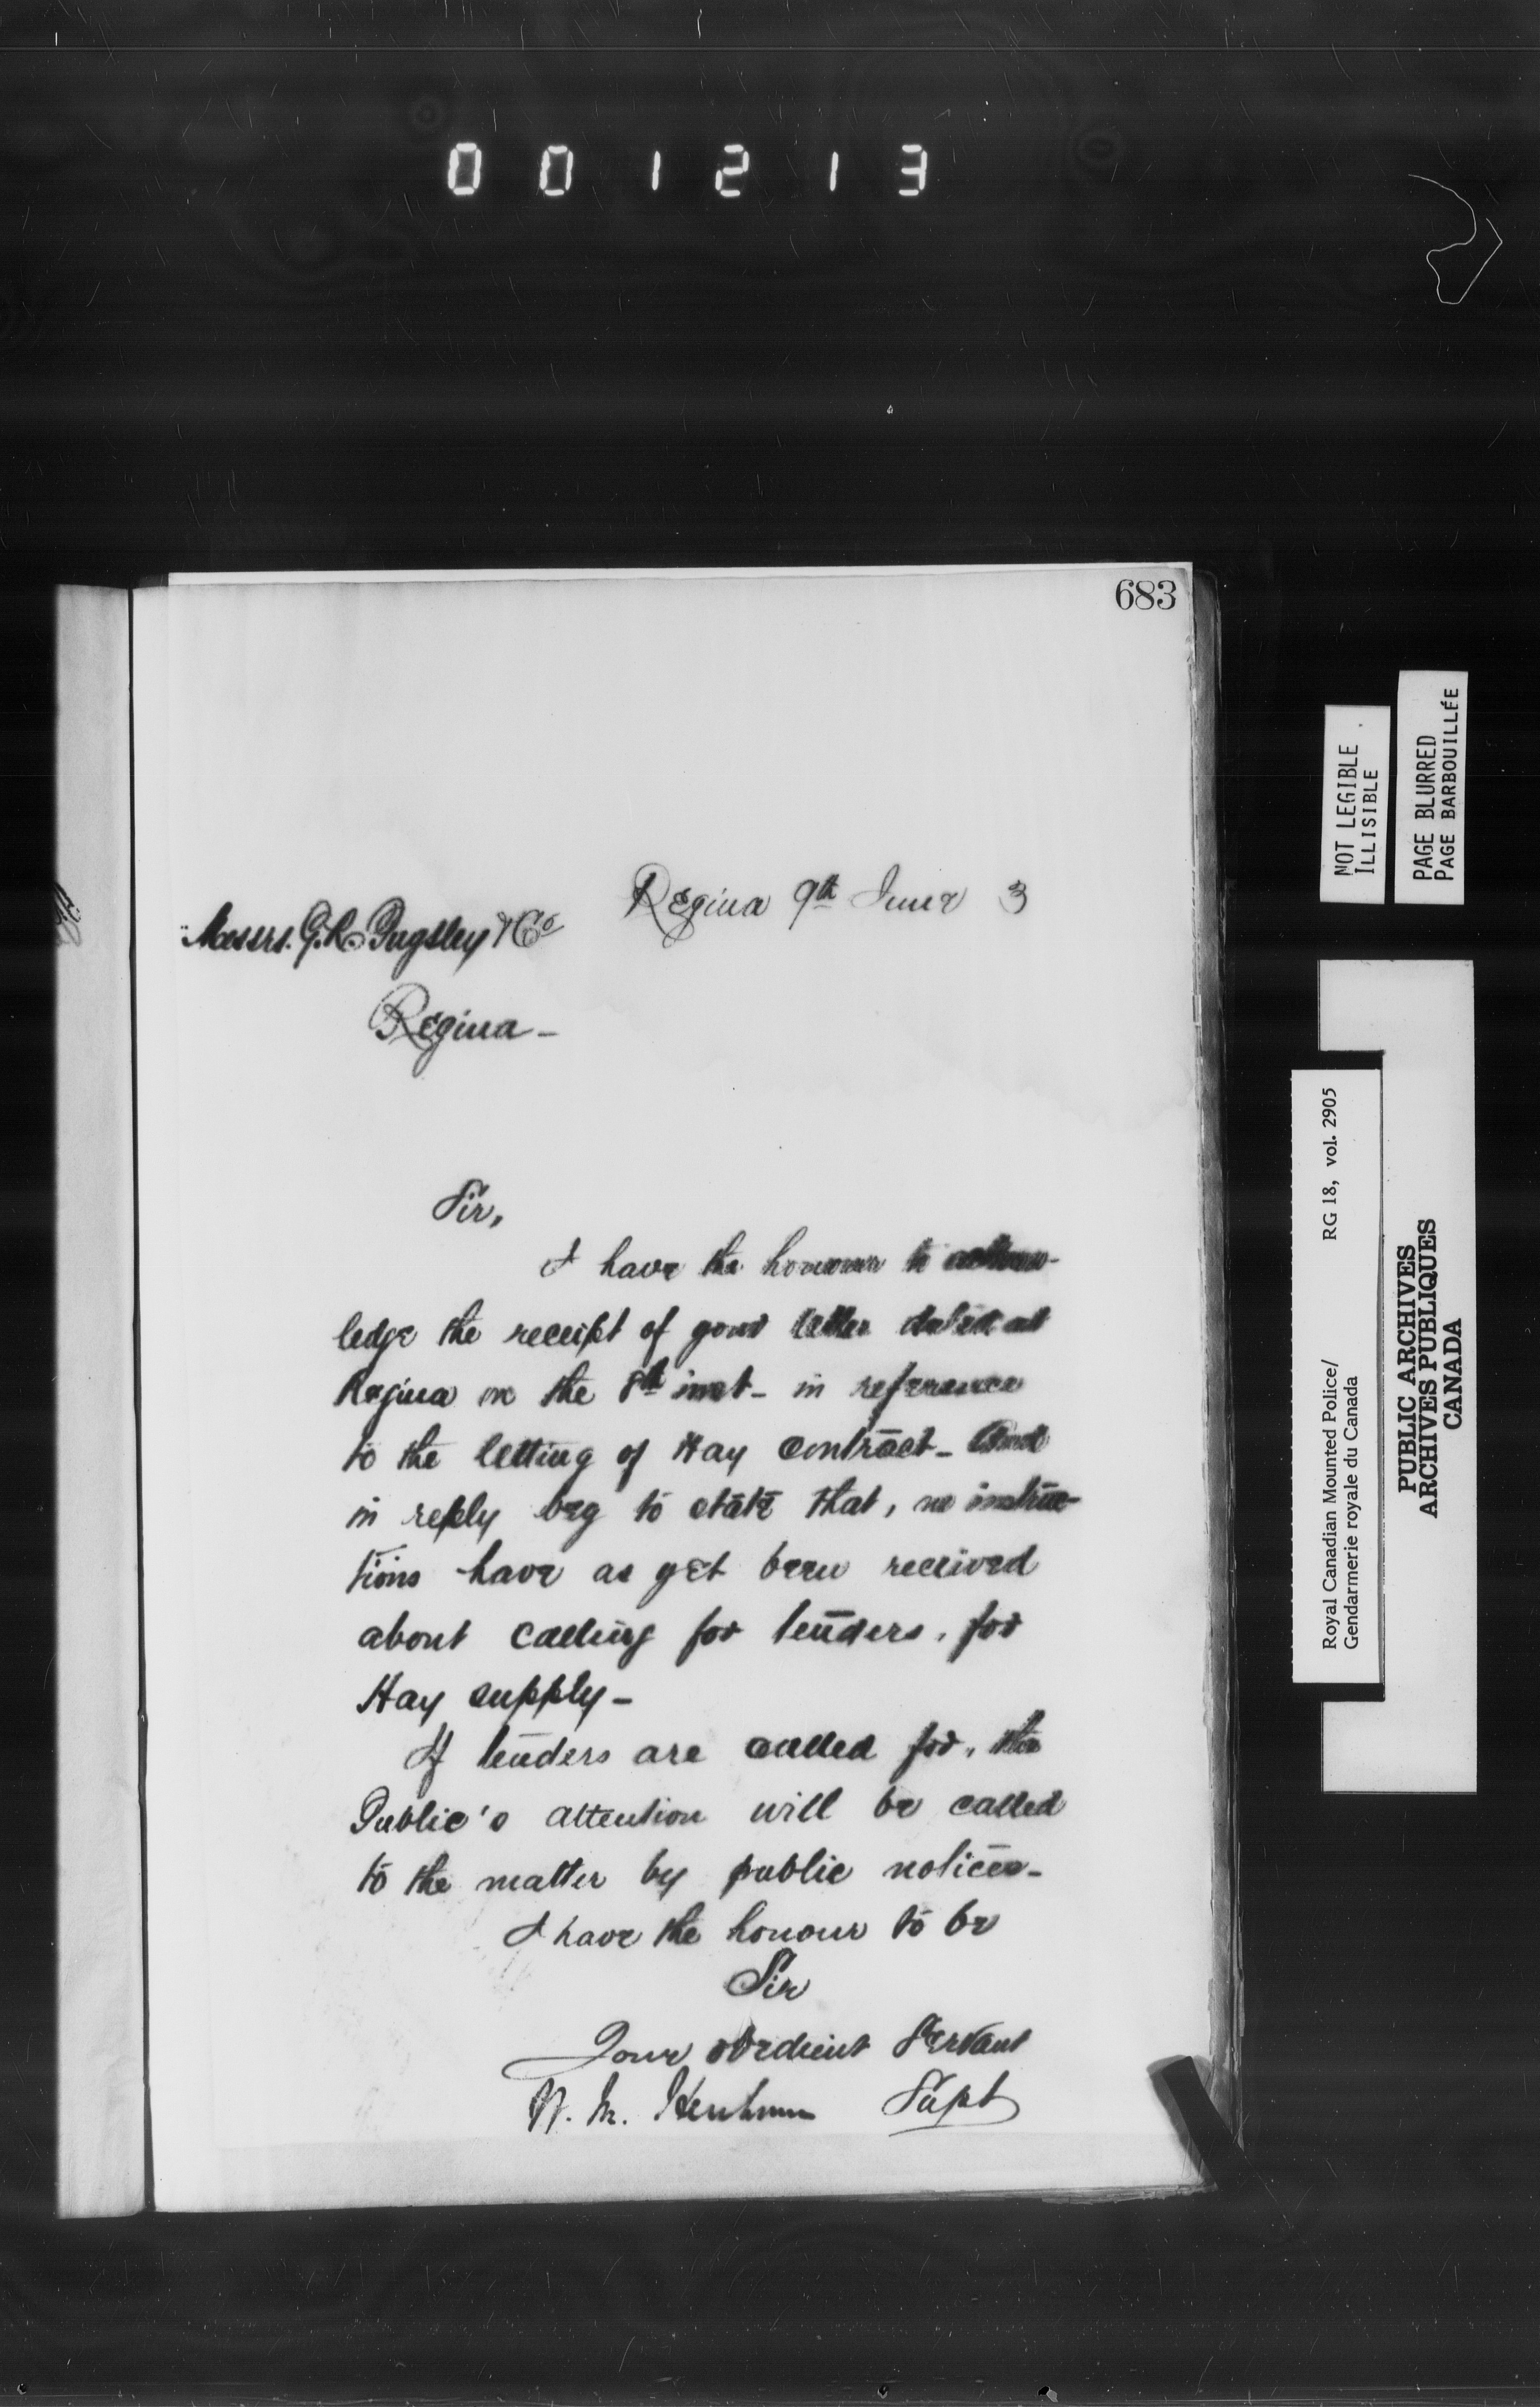 001213
683
Regina 9th June 3
Messrs. G.R. Pugsley & Co
Regina -
Sir,
I have the honour to acknow-
ledge the receipt of your letter dated at
Regina on the 8th inst - in reference
to the letting of Hay contract - And
in reply beg to state that, no instruc-
tions have as yet been received
about calling for tenders, for
Hay supply -
If tenders are called for, the
Public's attention will be called
to the matter by public notices -
I have the honour to be
Sir
Your obedient Servant
Supt
NOT LEGIBLE
ILLISIBLE
PAGE BLURRED
PAGE BARBOUILLÉE
Royal Canadian Mounted Police/ RG 18, vol. 2905
Gendarmerie royale du Canada
PUBLIC ARCHIVES
ARCHIVES PUBLIQUES
CANADA